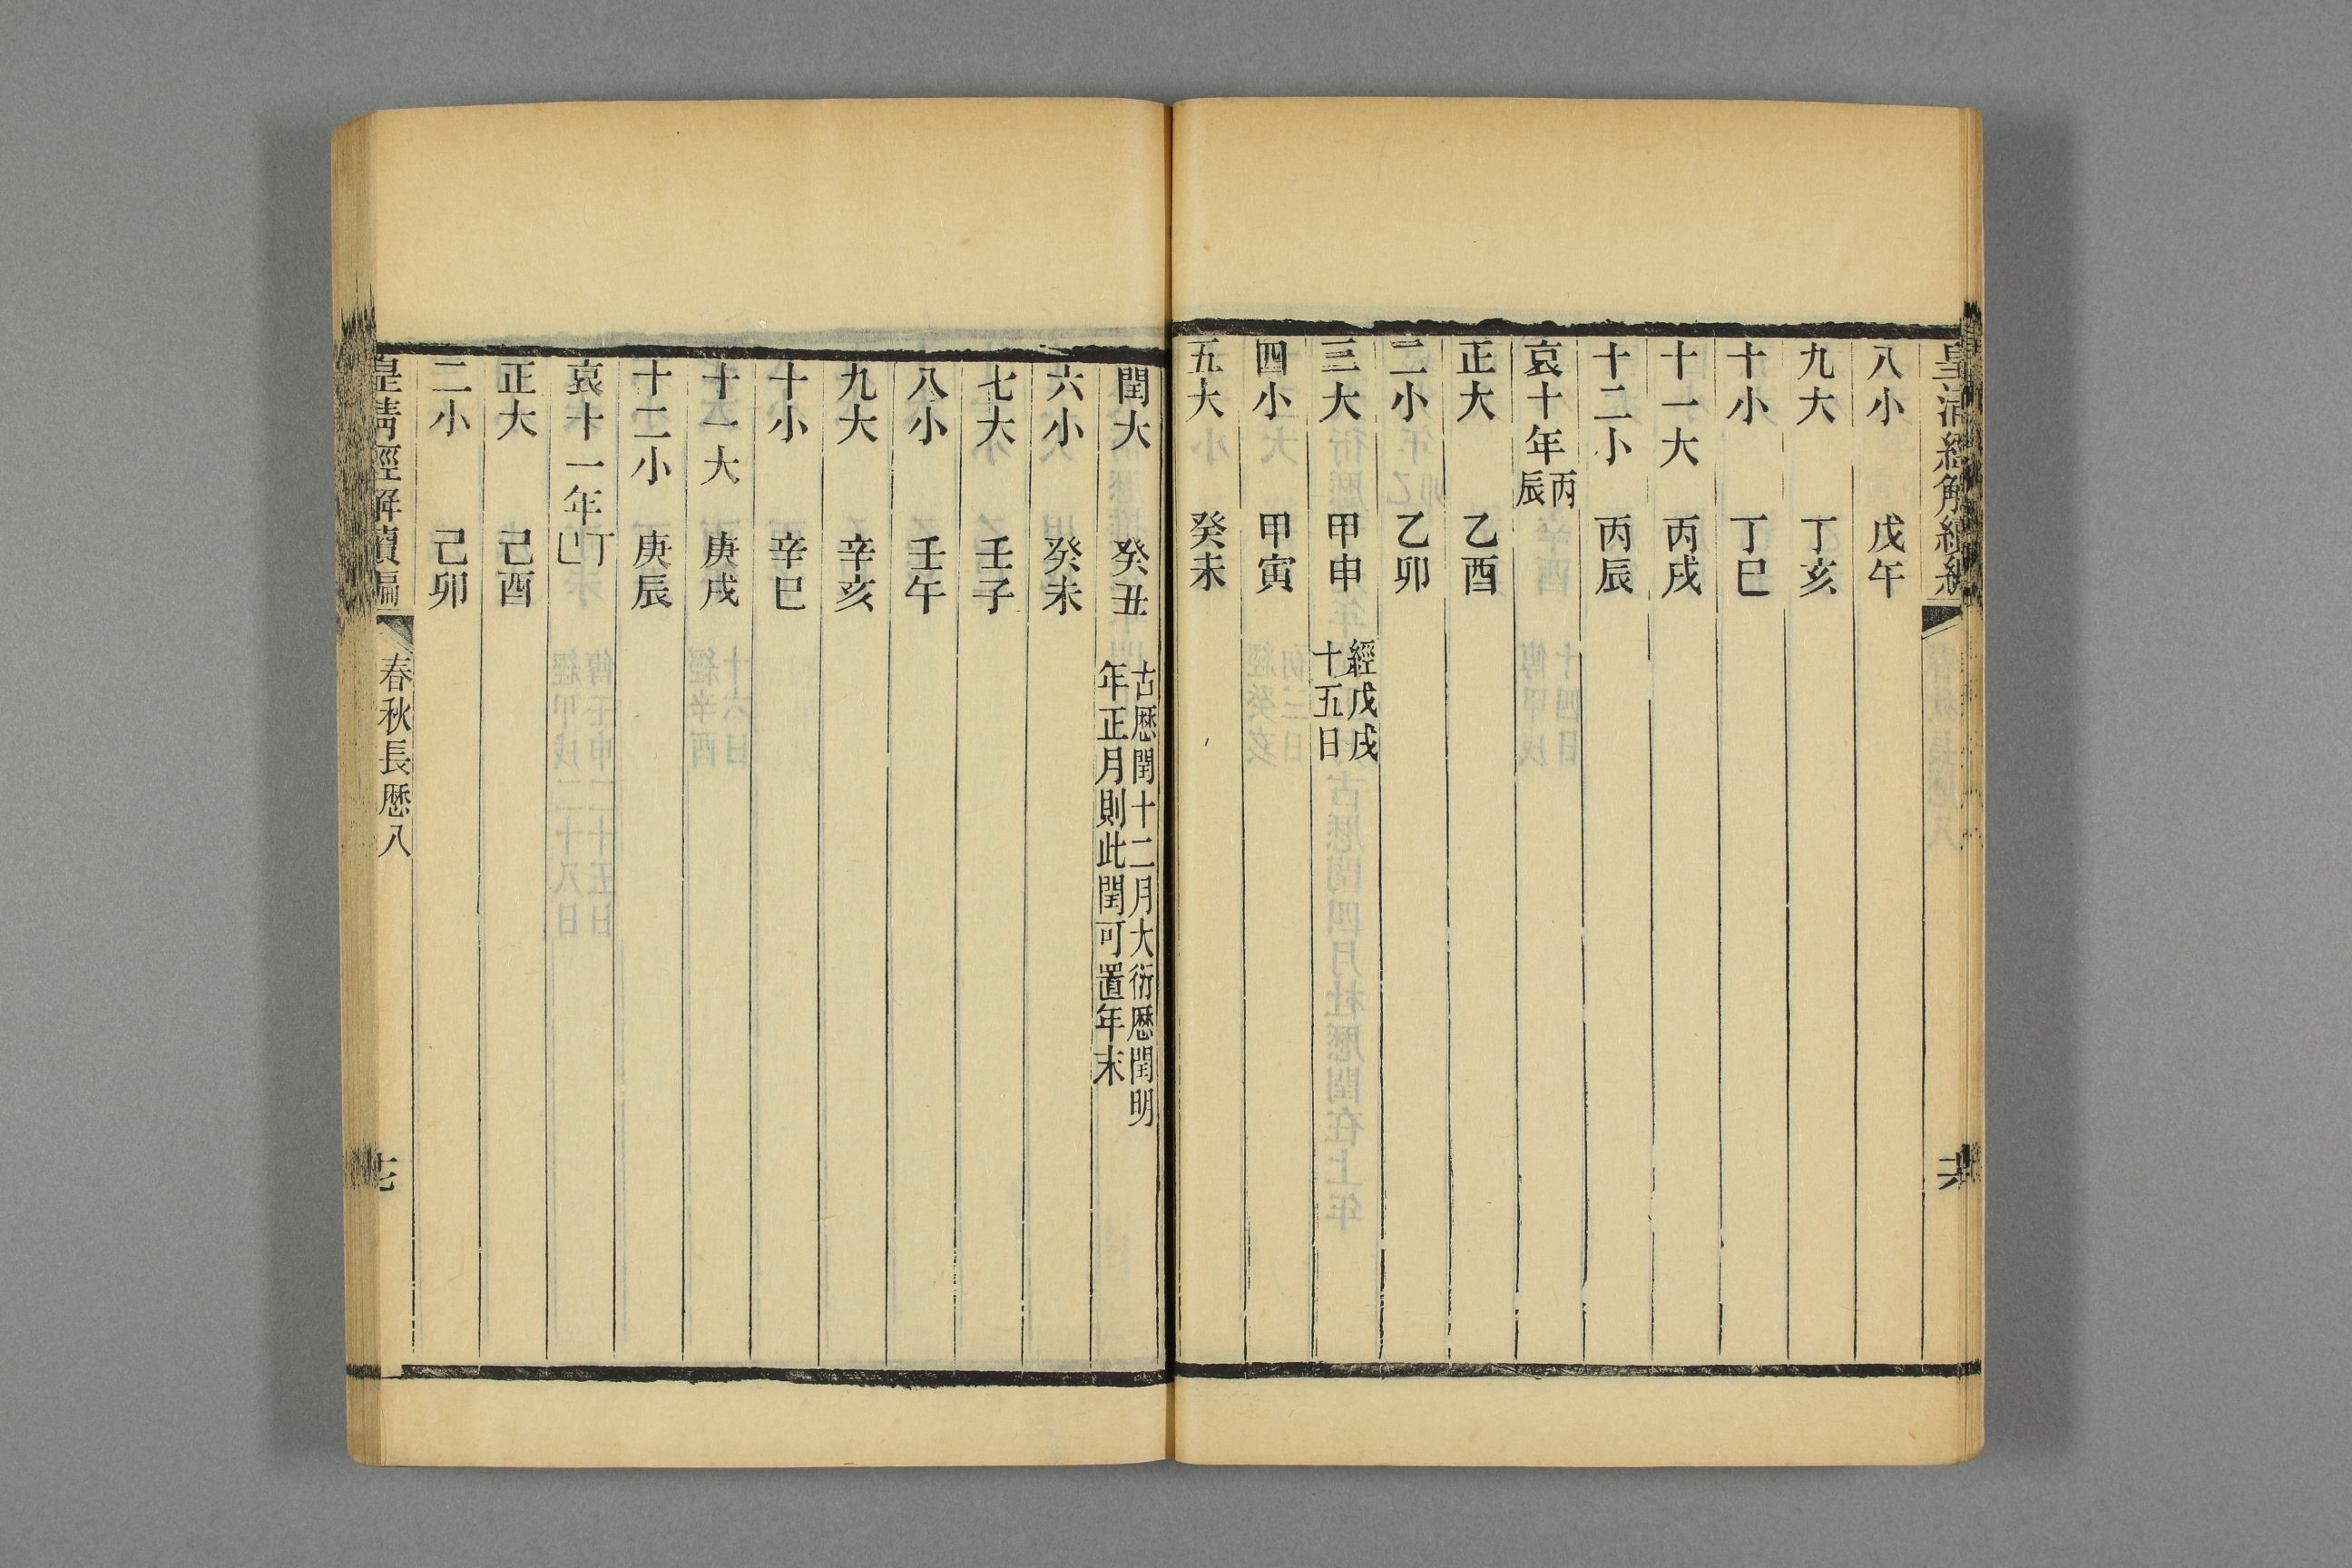 皇清經解續編
八小 戊午
九大 丁亥
十小 丁巳
十一大 丙戌
十二小 丙辰
哀十年丙辰
正大 乙酉
二小 乙卯
三大 甲申 經戊戌
十五日
四小 甲寅
五大 癸未
閏大 癸丑 古厯閏十二月大衍厯閏明
年正月則此閏可置年末
六小 癸未
七大 壬子
八小 壬午
九大 辛亥
十小 辛巳
十一大 庚戌
十二小 庚辰
哀十一年丁巳
正大 己酉
二小 己卯
皇清經解續編 春秋長厯八